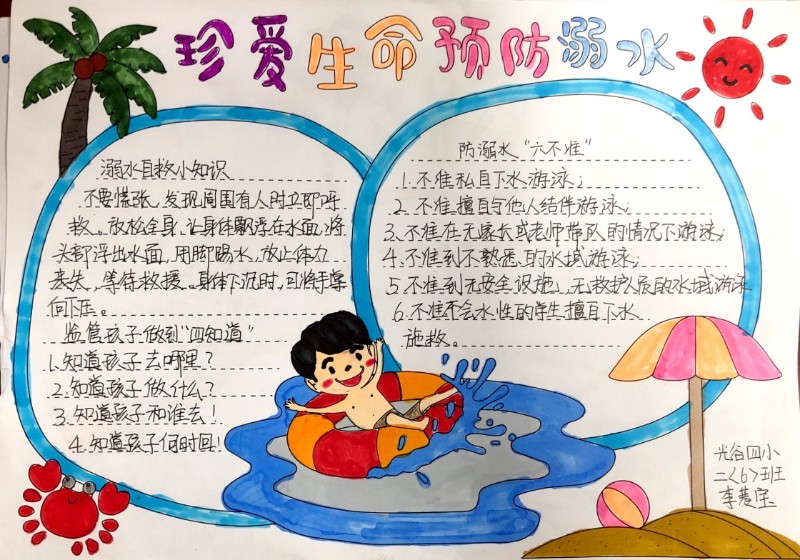 珍爱生命预防溺水
溺水自救小知识
不要慌张,发现周围有人时立即呼
救。放松全身,让身体飘浮在水面,将
头部浮出水面,用脚踢水,放止体力
丧失,等待救援。身体下沉时,可将手掌
向下压。
监管孩子做到"四知道"
1.知道孩子去哪里?
2.知道孩子做什么?
3.知道孩子和谁去!
4.知道孩子何时回!
防溺水"六不准"
1.不准私自下水游泳;
2.不准擅自与他人结伴游泳;
3.不准在无家长或老师带队的情况下游泳;
4.不准到不熟悉的水域游泳;
5.不准到无安全设施、无救护人员的水域游泳
6.不准不会水性的学生擅自下水
施救。
光谷四小
二〈6〉班
李